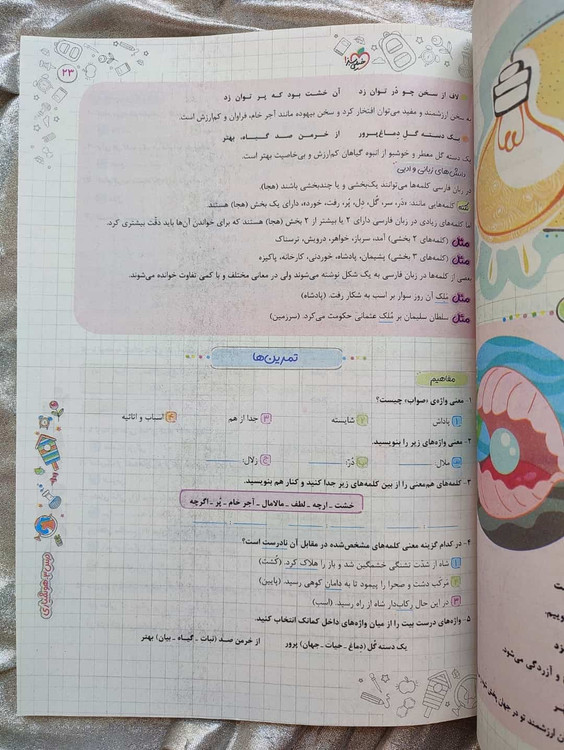 ۲۳
لاف از سخن چو دُر توان زد آن خشت بود که پر توان زد
به سخن ارزشمند و مفید می‌توان افتخار کرد و سخن بیهوده مانند آجر خام، فراوان و کم‌ارزش است.
یک دسته گل دماغ‌پرور از خرمن صد گیاه، بهتر
یک دسته گل معطر و خوشبو از انبوه گیاهان کم‌ارزش و بی‌خاصیت بهتر است.
دانش‌های زبانی و ادبی
در زبان فارسی کلمه‌ها می‌توانند یک‌بخشی و یا چندبخشی باشند (هجا)
نکته کلمه‌هایی مانند: «دُر، سر، گُل، دِل، پُر، رفت، خورد»، دارای یک بخش (هجا) هستند.
اما کلمه‌های زیادی در زبان فارسی دارای ۲ یا بیشتر از ۲ بخش (هجا) هستند که برای خواندن آن‌ها باید دقّت بیشتری کرد.
مثل (کلمه‌های ۲ بخشی) آمد، سرباز، خواهر، درویش، ترسناک
مثل (کلمه‌های ۳ بخشی) پشیمان، پادشاه، خوردنی، کارخانه، پاکیزه
بعضی از کلمه‌ها در زبان فارسی به یک شکل نوشته می‌شوند ولی در معانی مختلف و با کمی تفاوت خوانده می‌شوند.
مثل مَلِک آن روز سوار بر اسب به شکار رفت. (پادشاه)
مثل سلطان سلیمان بر مُلک عثمانی حکومت می‌کرد. (سرزمین)
تمرین‌ها
مفاهیم
۱- معنی واژه‌ی «صواب» چیست؟
۱ پاداش ۲ شایسته ۳ جدا از هم ۴ اسباب و اثاثیه
۲- معنی واژه‌های زیر را بنویسید.
الف ملال: ب دُرّ: ج زلال:
۳- کلمه‌های هم‌معنی را از بین کلمه‌های زیر جدا کنید و کنار هم بنویسید.
خشت ـ ارچه ـ لطف ـ مالامال ـ آجر خام ـ پُر ـ اگرچه
۴- در کدام گزینه معنی کلمه‌های مشخص‌شده در مقابل آن نادرست است؟
۱ شاه از شدّت تشنگی خشمگین شد و باز را هلاک کرد. (کُشت)
۲ مرکب دشت و صحرا را پیمود تا به دامان کوهی رسید. (پایین)
۳ در این حال رکاب‌دار شاه از راه رسید. (اسب)
۵- واژه‌های درست بیت را از میان واژه‌های داخل کمانک انتخاب کنید.
یک دسته گُل (دماغ ـ حیات ـ جهان) پرور از خرمن صد (نبات ـ گیاه ـ بیان) بهتر
درس ۳ هوشیاری
و آزردگی می‌شود.